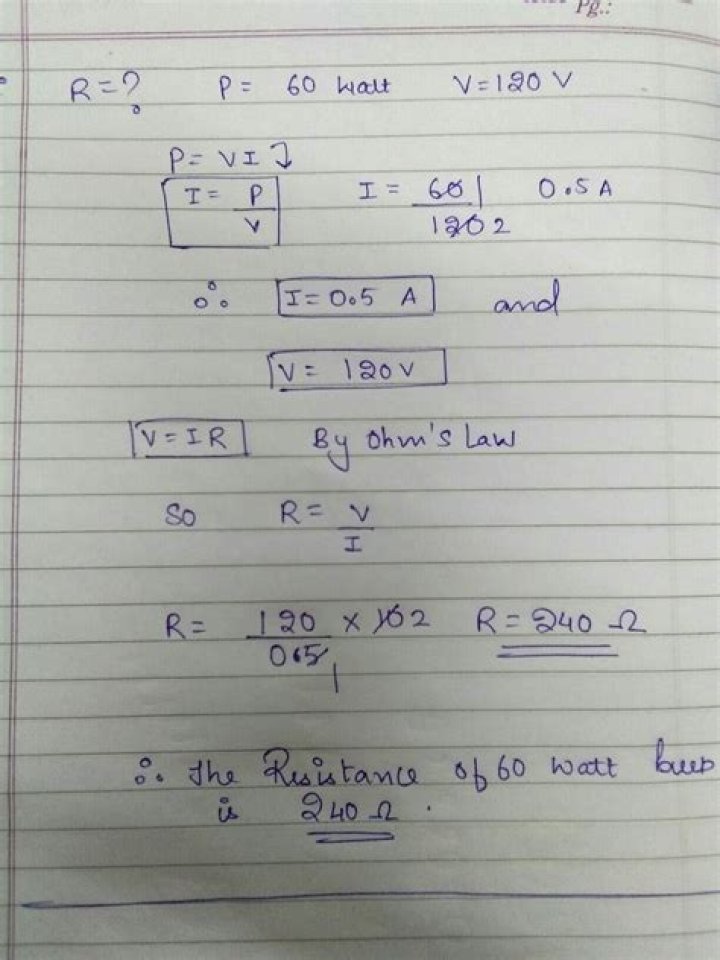 Pg.:
R = ? P = 60 watt V = 120 V
P = VI ↓
I = P/V I = 60/120 1 2 0.5 A
∴ I = 0.5 A and
V = 120 V
V = IR By Ohm's Law
So R = V/I
R = 120/0.5 × 10 2 1 R = 240 Ω
∴ The Resistance of 60 watt
is 240 Ω .